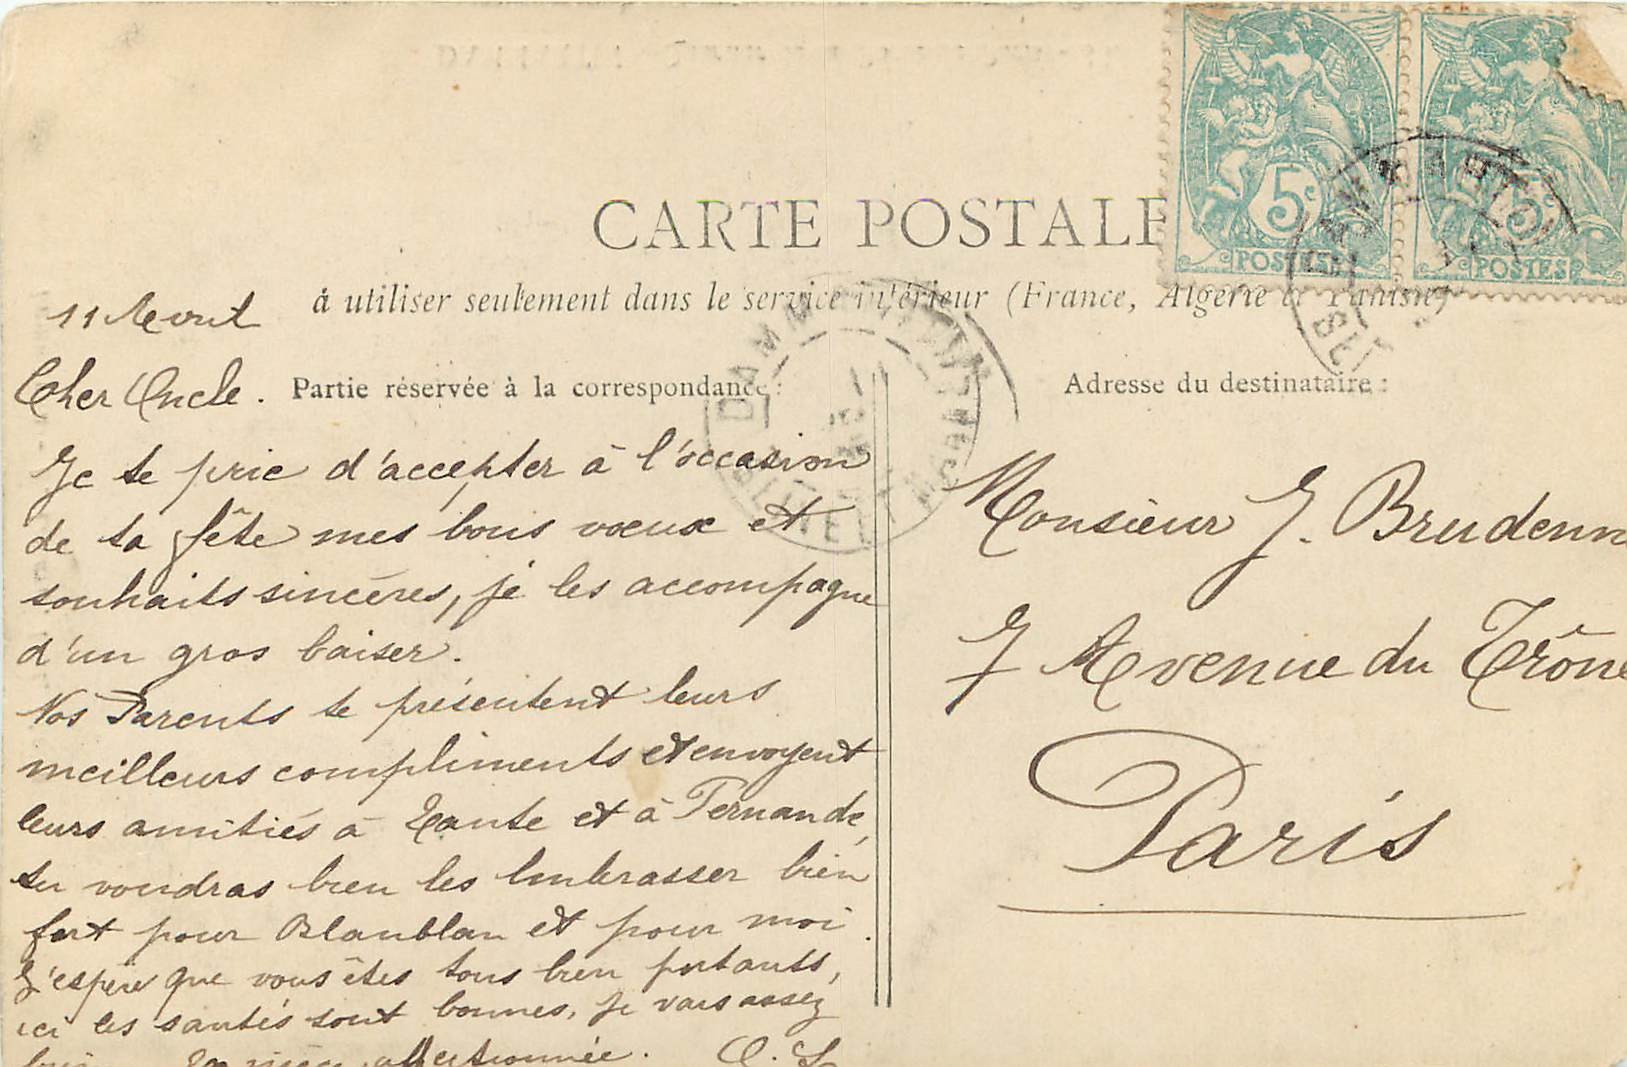 CARTE POSTALE
à utiliser seulement dans le service intérieur (France, Algérie et Tunisie)
5c
POSTES
5c
POSTES
DAMMARTIN
SEINE ET MARNE
11 Avril
Partie réservée à la correspondance :
Cher Oncle.
Je te prie d'accepter à l'occasion
de ta fête mes bons voeux et
souhaits sincères, je les accompagne
d'un gros baiser.
Nos Parents te présentent leurs
meilleurs compliments et envoyent
leurs amitiés à Tante et à Fernande,
tu voudras bien les embrasser bien
fort pour Blanblan et pour moi.
J'espère que vous êtes tous bien portants,
ici les santés sont bonnes, je vais assez
bien. Ta nièce affectionnée.
Adresse du destinataire :
Monsieur J. Brudenn
7 Avenue du Trône
Paris